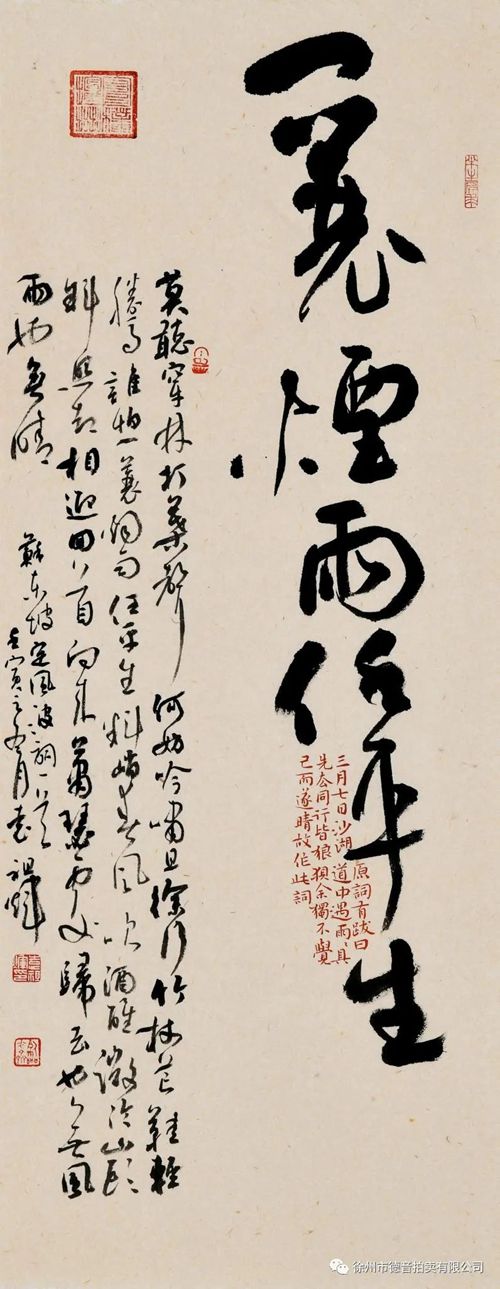 一蓑煙雨任平生
原詞有跋曰
三月七日沙湖道中遇雨〻具
先去同行皆狼狽余獨不覺
已而遂晴故作此詞
莫聽穿林打葉聲何妨吟嘯且徐行竹杖芒鞋輕
勝馬誰怕一蓑烟雨任平生料峭春風吹酒醒微冷山頭
斜照却相迎回首向來蕭瑟處歸去也無風
雨也無晴
蘇東坡定風波詞一首
壬寅之月
徐州市德音拍卖有限公司